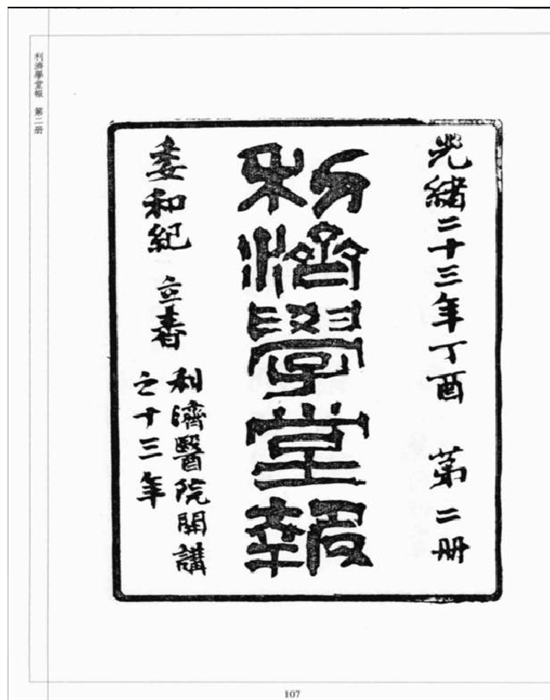 利濟學堂報 第二册
光緒二十三年丁酉 第二册
利濟學堂報
委和紀 立春
利濟醫院開講
之十三年
107